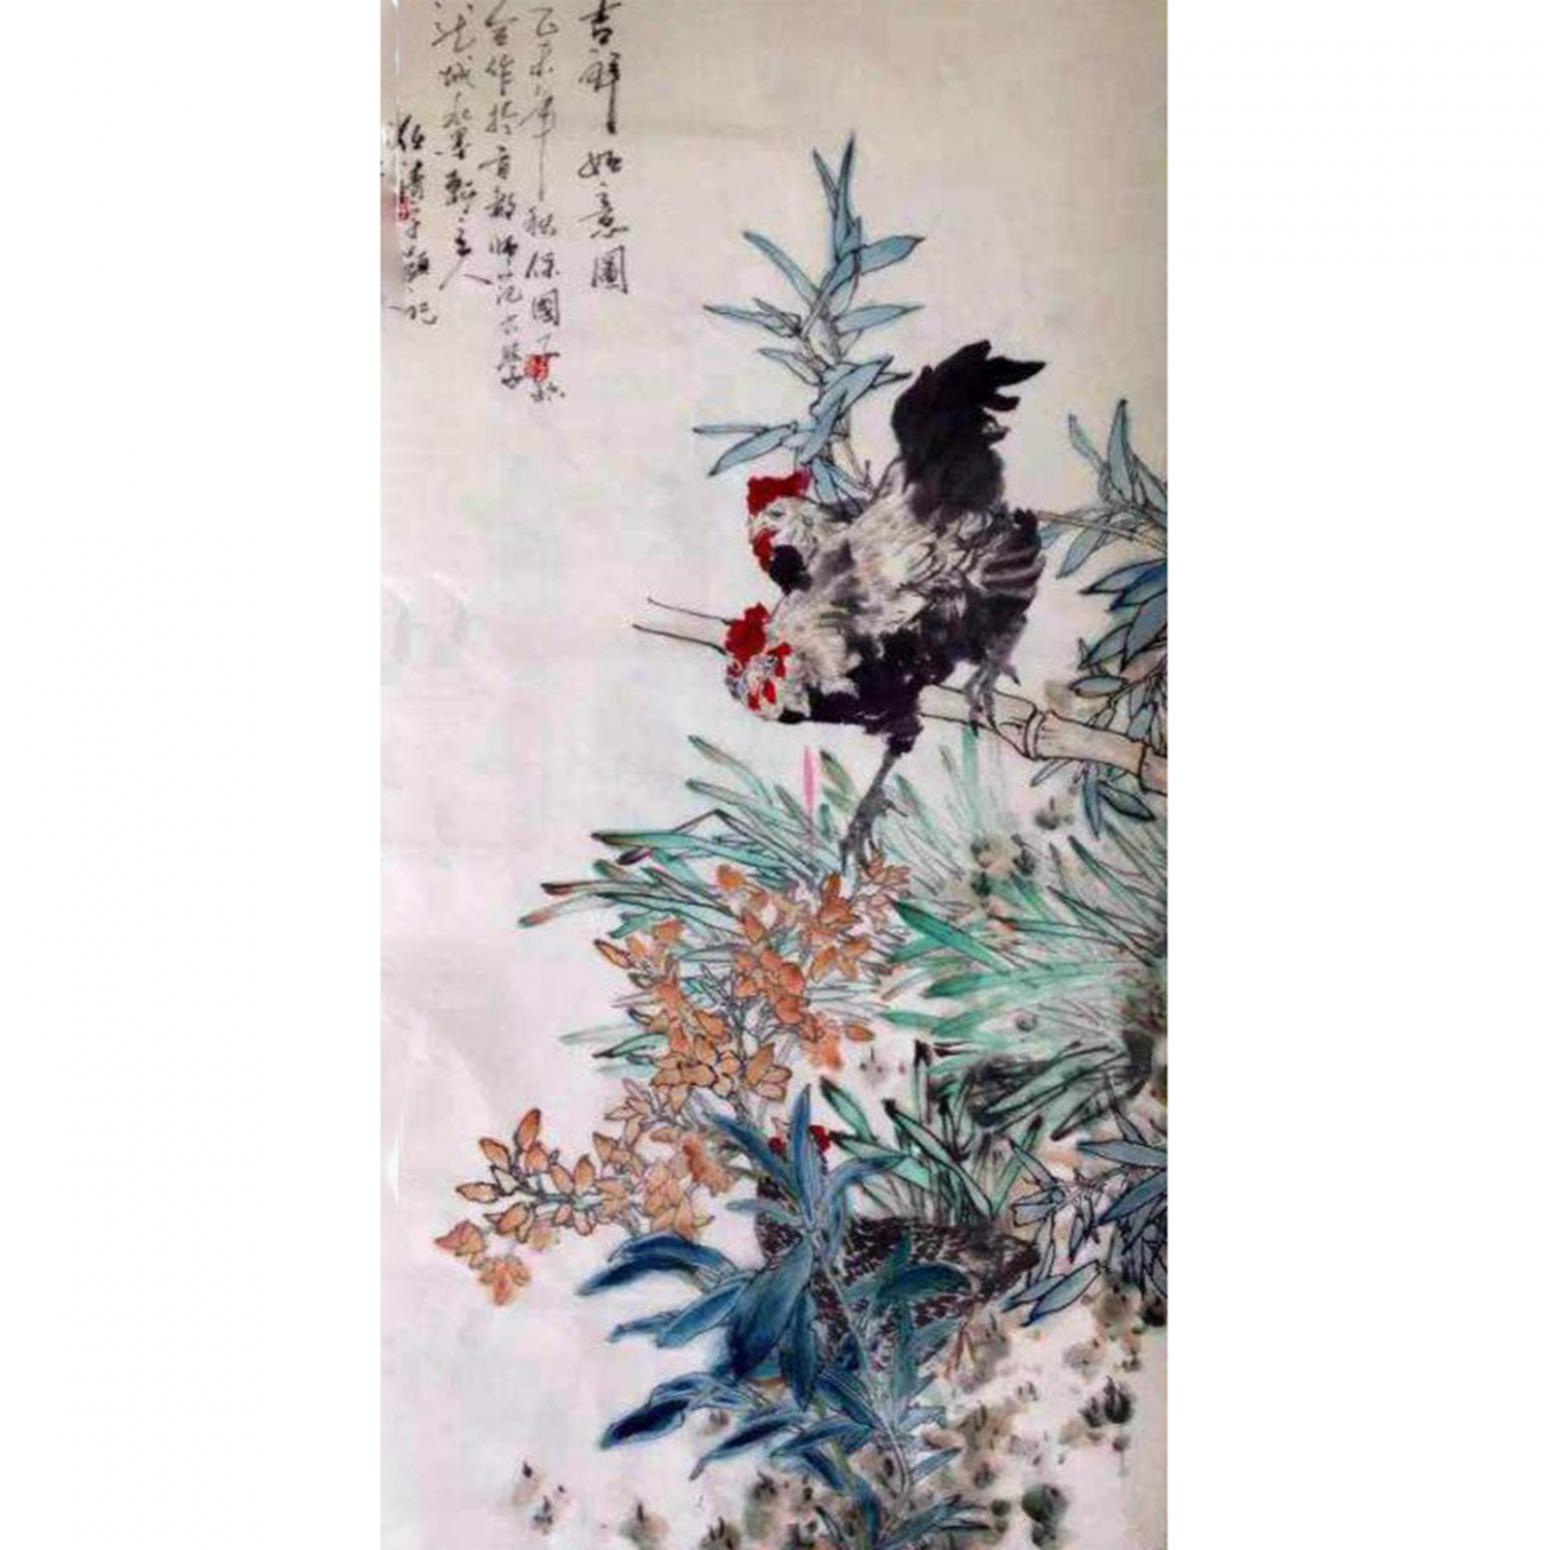 吉祥如意圖
乙未年秋保國
合作於首都師范大學
龙城水墨軒主人
任清 記